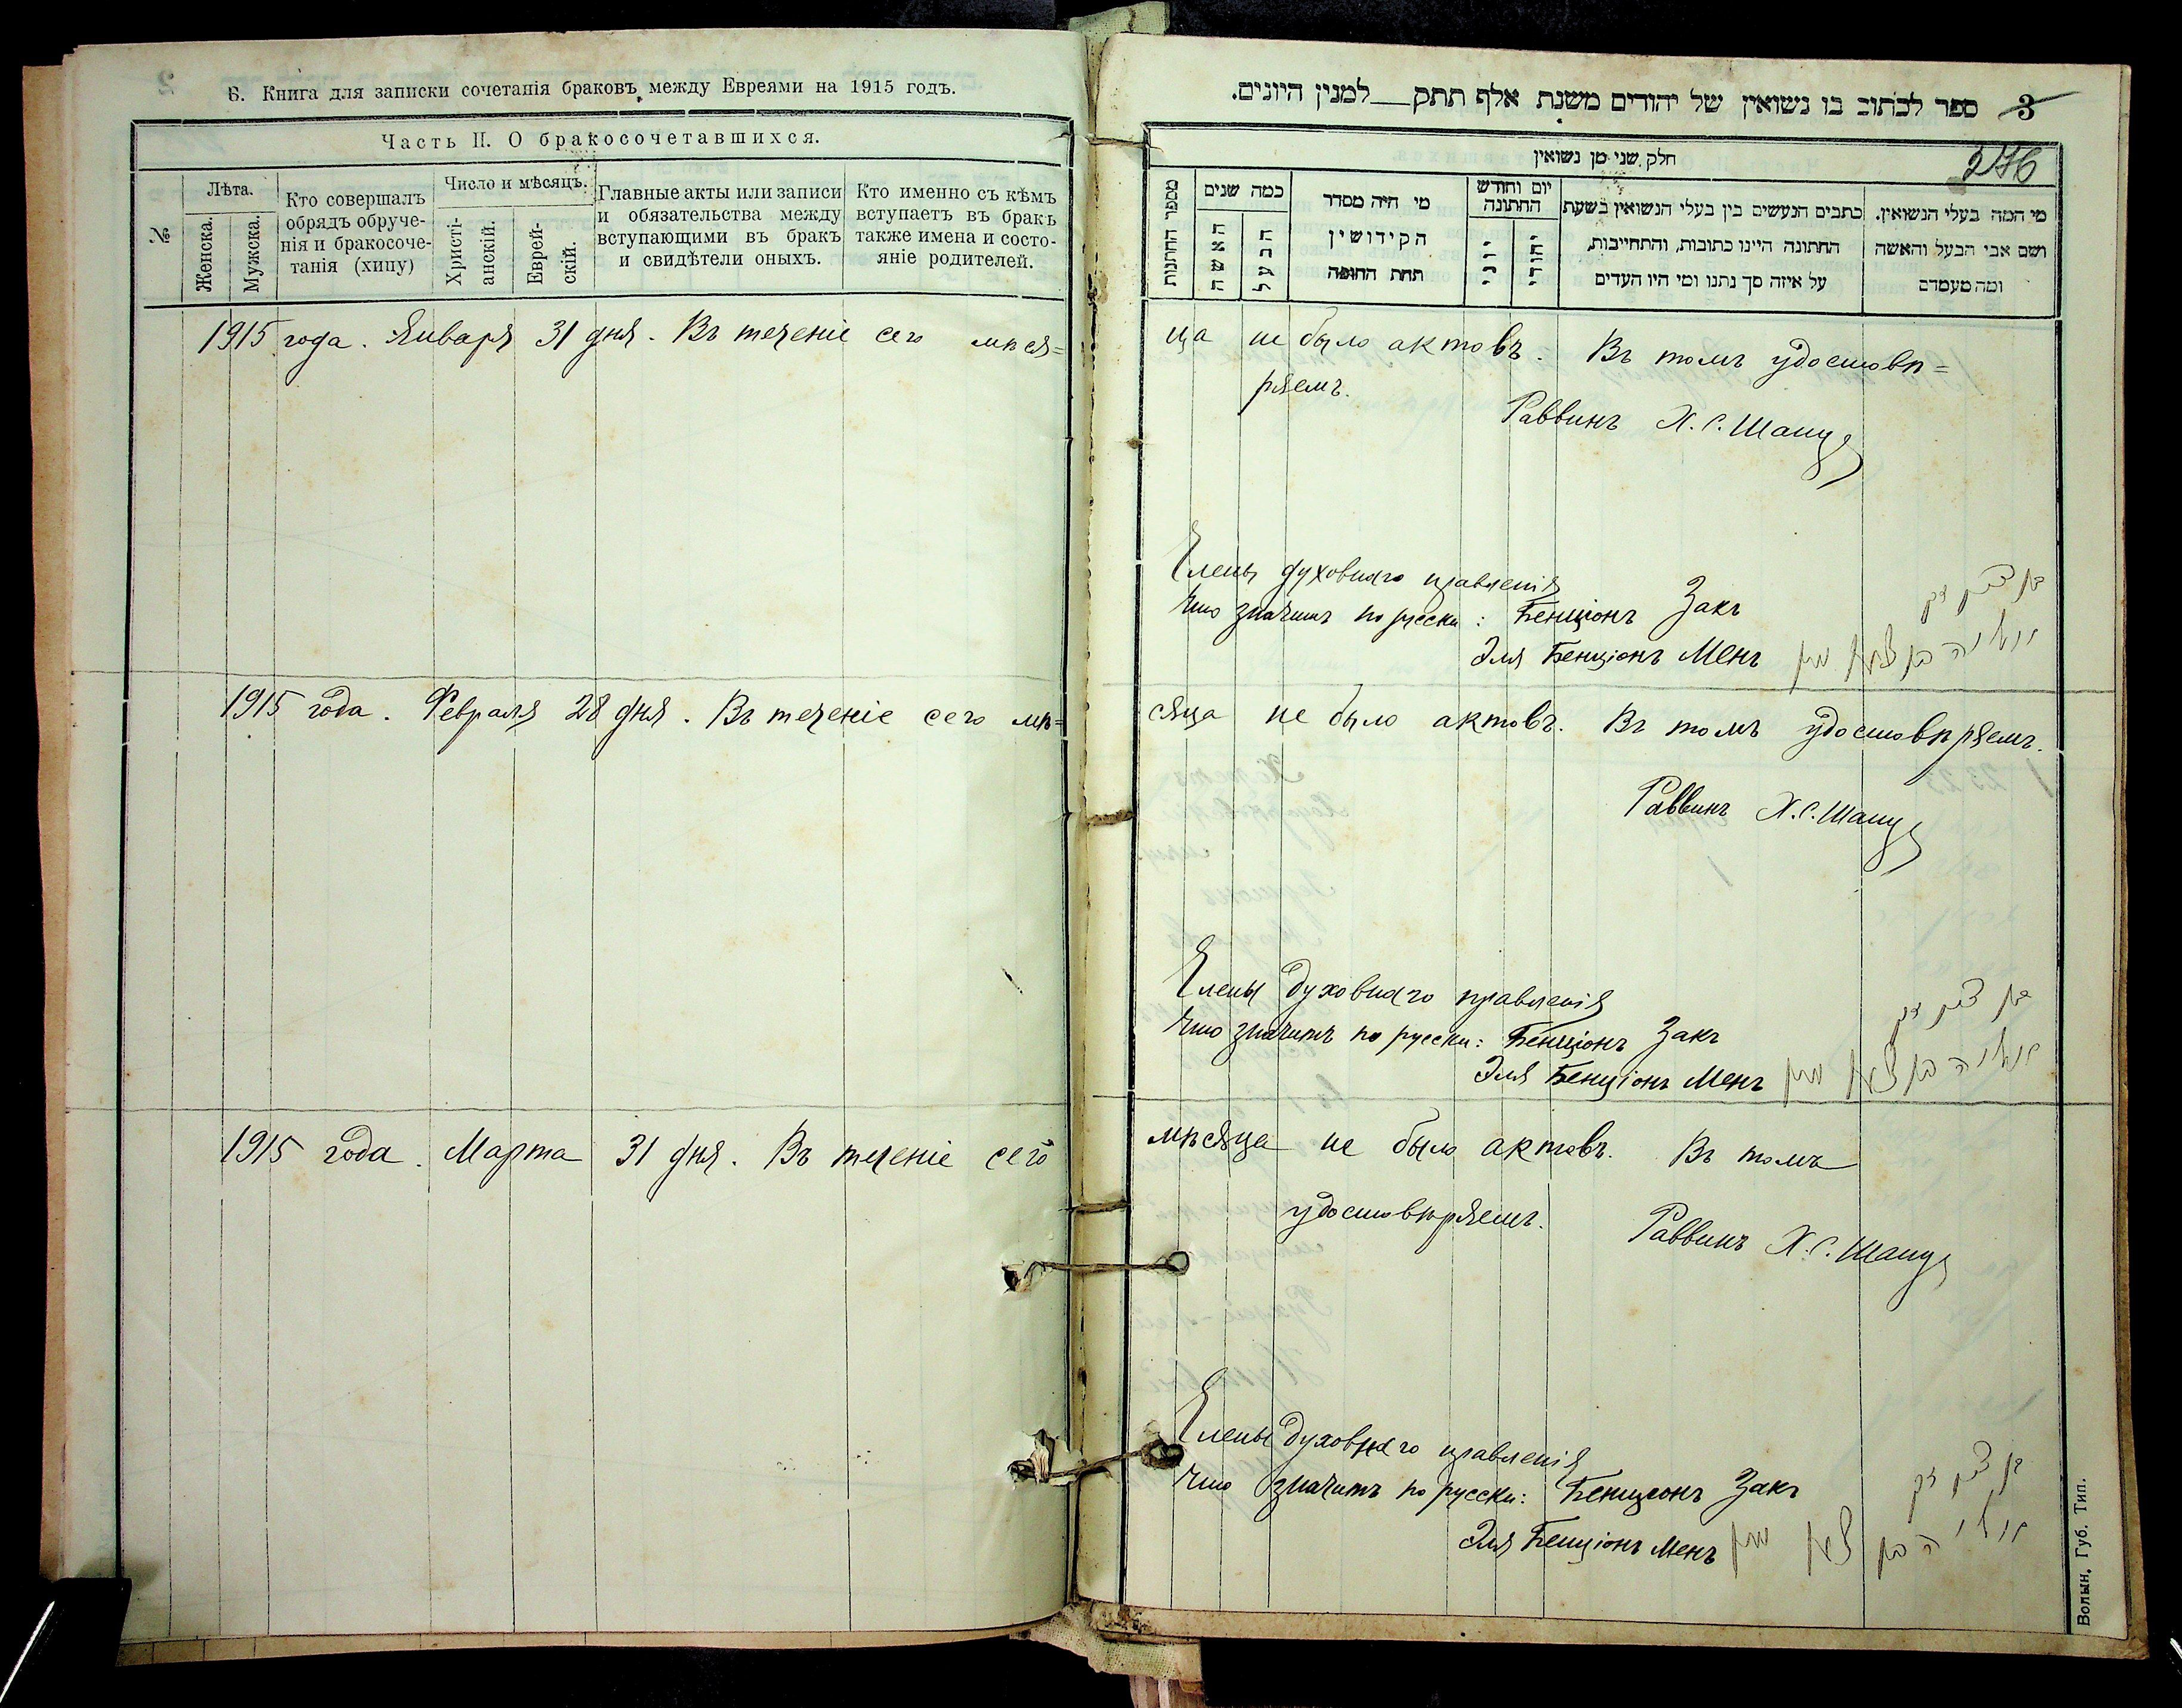 Б. Книга для записки сочетанія браковъ между Евреями на 1915 годъ.
Часть II. О бракосочетавшихся.
№
Лѣта.
Женска.
Мужска.
Кто совершалъ
обрядъ обруче-
нія и бракосоче-
танія (хипу)
Число и мѣсяцъ.
Христі-
анскій.
Еврей-
скій.
Главные акты или записи
и обязательства между
вступающими въ бракъ
и свидѣтели оныхъ.
Кто именно съ кѣмъ
вступаетъ въ бракъ
также имена и состо-
яніе родителей.
1915 года. Января 31 дня. Въ теченіе сего мѣся=
1915 года. Февраля 28 дня. Въ теченіе сего мѣ=
1915 года. Марта 31 дня. Въ теченіе сего
3 ספר לכתוב בו נשואין של יהודים משנת אלף תתק למנין היונים.
חלק שני מן נשואין
מספר החתונות
כמה שנים
האשה
הבעל
מי היה מסדר
הקידושין
תחת החופה
יום וחודש
החתונה
יוני
יהודי
כתבים הנעשים בין בעלי הנשואין בשעת
החתונה היינו כתובות, והתחייבות,
על איזה סך נתנו ומי היו העדים
מי המה בעלי הנשואין.
ושם אבי הבעל והאשה
ומה מעמדם
ца не было актовъ. Въ томъ удостовѣ=
ряемъ.
Раввинъ Х. С. Шапиро
Члены духовнаго правленія
что значитъ по русски: Бенціонъ Закъ
בן ציון זק
Эля Бенціонъ Менъ
сяца не было актовъ. Въ томъ удостовѣряемъ.
Раввинъ Х. С. Шапиро
Члены духовнаго правленія
что значитъ по русски: Бенціонъ Закъ
בן ציון זק
Эля Бенціонъ Менъ
мѣсяца не было актовъ. Въ томъ
удостовѣряемъ.
Раввинъ Х. С. Шапиро
Члены духовнаго правленія
что значитъ по русски: Бенціонъ Закъ
בן ציון זק
Эля Бенціонъ Менъ
Волын. Губ. Тип.